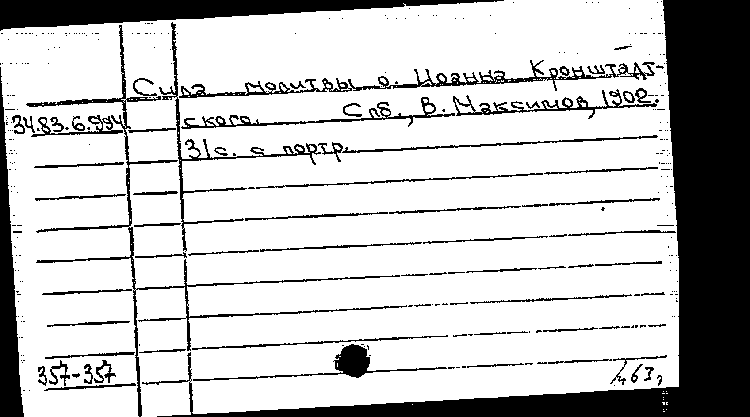 Сила молитвы о. Иоанна Кронштадт-
34.83.6.994. ского. Спб., В. Максимов, 1902.
31с. с портр.
357-357